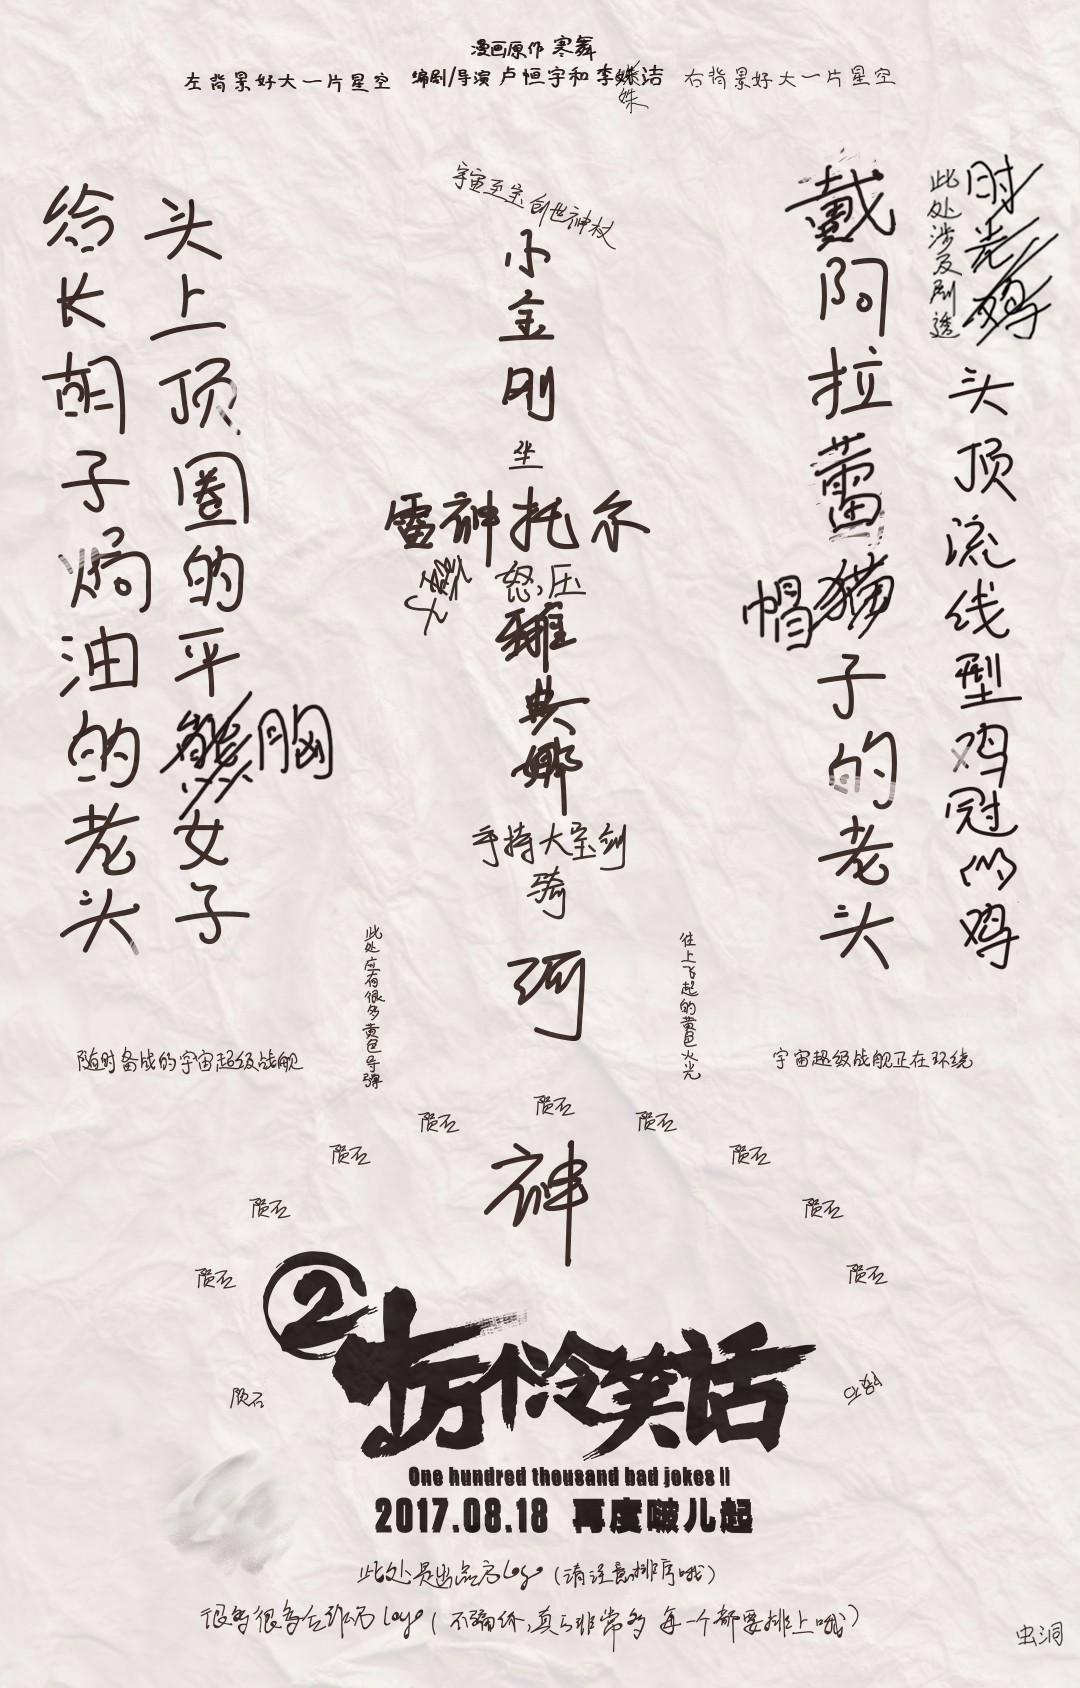 漫画原作 寒舞
左背景好大一片星空 编剧/导演 卢恒宇和李姝洁 右背景好大一片星空
姝
宇宙至宝创世神杖
给长胡子焗油的老头
头上顶圈的平胸女子
小金刚
坐
雷神托尔
怒,压
雅典娜
手持大宝剑
骑
河
神
戴阿拉蕾帽子的老头
此处涉及剧透
时光鸡
头顶流线型鸡冠的鸡
此处应有很多黄色导弹
往上飞起的黄色火光
随时备战的宇宙超级战舰
宇宙超级战舰正在环绕
陨石
陨石
陨石
陨石
陨石
陨石
陨石
陨石
陨石
陨石
陨石
2
十万个冷笑话
One hundred thousand bad jokes II
2017.08.18 再度啵儿起
此处是出品方logo(请注意排序哦)
很多很多合作方logo(不骗你,真的非常多 每一个都要排上哦)
虫洞